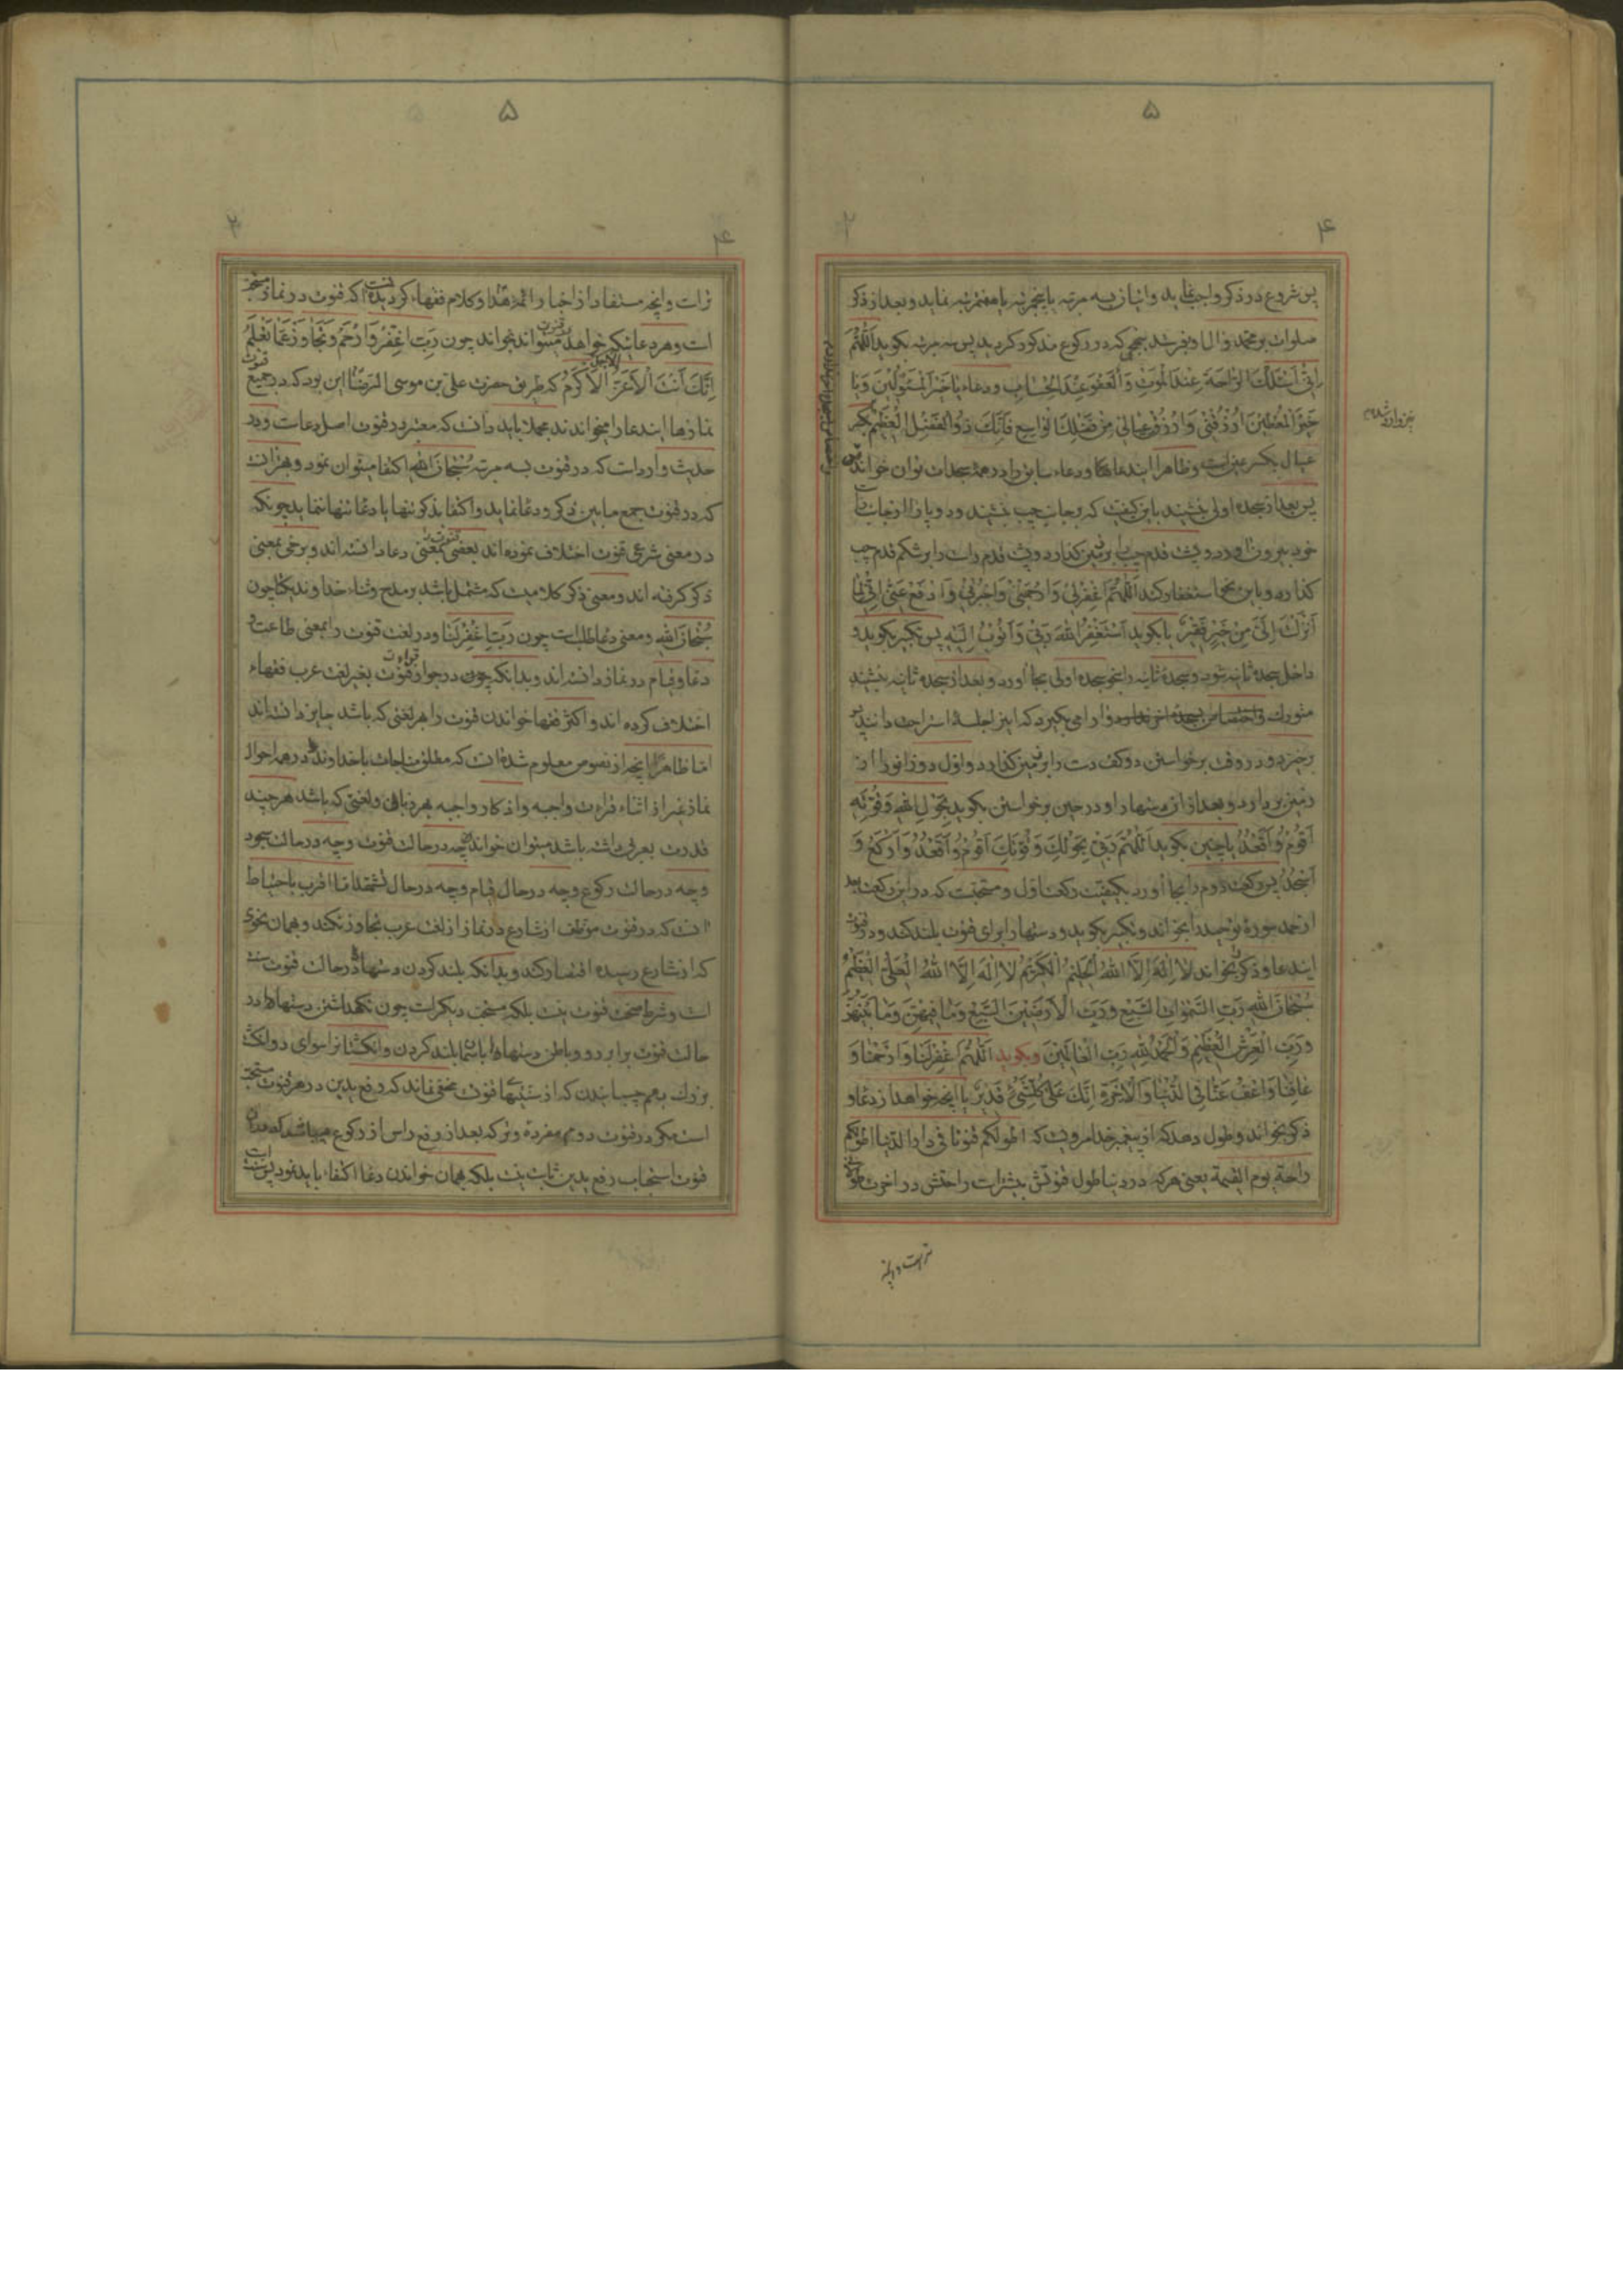 ۵
۴
پس شروع در ذکر واجب نماید و انباز بسه مرتبه یا پنجمرتبه یا هفتمرتبه نماید و بعد از ذکر
صلوات بر محمد وال او بفرستد بنهجی که در رکوع مذکور کردید پس سه مرتبه بکوید اَللّٰهُمَّ
اِنّی اَسْئَلُکَ الرّٰاحَةَ عِنْدَ الْمَوْتِ وَ الْعَفْوَ عِنْدَ الْحِسٰابِ و دعاء یٰا خَیْرَ الْمَسْئُوْلینَ وَ یٰا
خَیْرَ الْمُعْطینَ اُرْزُقْنی وَ ارْزُقْ عِیٰالی مِنْ فَضْلِکَ الْوٰاسِعِ فَاِنَّکَ ذُوالْفَضْلِ الْعَظیمِ بکسر
عیال بکسر عین است و ظاهرا ایندعاها و دعاء سابق را در همهٔ سجدات توان خواند
پس بعد از سجده اولی بنشیند باین کیفیت که بر جانب چپ بنشیند و دو پا را از جانب راست
خود بیرون اورد و پشت قدم چپ را بر زمین کذارد و پشت قدم راست را بر شکم قدم چپ
کذارد و باین نحو استغفار کند اَللّٰهُمَّ اغْفِرْلی وَ ارْحَمْنی وَ اجْبُرْنی وَ ادْفَعْ عَنّی اِنّی لِمٰا
اَنْزَلْتَ اِلَیَّ مِنْ خَیْرٍ فَقیْرٌ یا بکوید اَسْتَغْفِرُ اللّٰهَ رَبّی وَ اَتُوْبُ اِلَیْهِ پس تکبیر بکوید و
داخل سجدهٔ ثانیه شود و سجدهٔ ثانیه را بنحو سجده اولی بجا اورد و بعد از سجده ثانیه بنشیند
متورک و ارامی بکیرد که اینرا جلسهٔ استراحت دانند پس
برخیزد و در وقت برخواستن دو کف دست را بر زمین کذارد و اول دو زانو را از
زمین بردارد و بعد از ان دستها را و در حین برخواستن بکوید بِحَوْلِ اللّٰهِ وَ قُوَّتِهِ
اَقُوْمُ وَ اَقْعُدُ یا چنین بکوید اَللّٰهُمَّ رَبّی بِحَوْلِکَ وَ قُوَّتِکَ اَقُوْمُ وَ اَقْعُدُ وَ اَرْکَعُ وَ
اَسْجُدُ پس رکعت دوم را بجا اورد بکیفیت رکعت اول و مستحبت که در این رکعت بعد
از حمد سورهٔ توحید را بخواند و تکبیر بکوید و دستها را برای قنوت بلند کند و در قنوت
ایندعا و ذکر را بخواند لٰا اِلٰهَ اِلَّا اللّٰهُ الْحَلیمُ الْکَریمُ لٰا اِلٰهَ اِلَّا اللّٰهُ الْعَلِیُّ الْعَظیمُ
سُبْحٰانَ اللّٰهِ رَبِّ السَّمٰوٰاتِ السَّبْعِ وَ رَبِّ الْاَرَضینَ السَّبْعِ وَ مٰا فیهِنَّ وَ مٰا بَیْنَهُنَّ
وَ رَبِّ الْعَرْشِ الْعَظیمِ وَ الْحَمْدُ لِلّٰهِ رَبِّ الْعٰالَمینَ و بکوید اَللّٰهُمَّ اغْفِرْ لَنٰا وَ ارْحَمْنٰا وَ
عٰافِنٰا وَ اعْفُ عَنّٰا فِی الدُّنْیٰا وَ الْاٰخِرَةِ اِنَّکَ عَلٰی کُلِّ شَیْءٍ قَدیرٌ یا انچه خواهد از دعا و
ذکر بخواند و طول دهد که از پیغمبر خدا مرویست که اطولکم قنوتا فی دار الدنیا اطولکم
راحة یوم القیمة یعنی هر که در دنیا طول قنوتش بیشتر است راحتش در اخرت
تر است و انچه
۵
۴
تر است و انچه مستفاد از اخبار ائمه هدا و کلام فقهاء کردیده است انکه قنوت در نماز مستحب
است و هر دعائیکه خواهد در قنوت میتواند بخواند چون رَبِّ اغْفِرْ وَ ارْحَمْ وَ تَجٰاوَزْ عَمّٰا تَعْلَمُ
اِنَّکَ اَنْتَ الْاَعَزُّ الْاَجَلُّ الْاَکْرَمُ که طریق حضرت علی بن موسی الرضا این بود که در قنوت جمیع
نمازها ایندعا را میخواندند مجملا باید دانست که معتبر در قنوت اصل دعاست و در
حدیث وارد است که در قنوت بسه مرتبه سُبْحٰانَ اللّٰهِ اکتفا میتوان نمود و بهتر انست
که در قنوت جمع مابین ذکر و دعا نماید و اکتفا بذکر تنها یا دعا تنها ننماید چونکه
در معنی شرعی قنوت اختلاف نموده‌اند بعضی قنوت را بمعنی دعا دانسته‌اند و برخی بمعنی
ذکر کرفته‌اند و معنی ذکر کلامیست که مشتمل باشد بر مدح و ثناء خداوند یکتا چون
سُبْحٰانَ اللّٰهِ و معنی دعا طلب است چون رَبِّ اغْفِرْ لَنٰا و در لغت قنوت را بمعنی طاعت و
دعا و قیام در نماز دانسته‌اند و بدانکه چون در جواز قراءت قنوت بغیر لغت عرب فقهاء
اختلاف کرده‌اند و اکثر فقها خواندن قنوت را بهر لغتی که باشد جایز دانسته‌اند
اما ظاهرا انچه از نصوص معلوم شده انست که مطلق مناجات با خداوند را در همه احوال
نماز غیر از اثناء قراءت واجبه و اذکار واجبه بهر زبان و لغتی که باشد هر چند
قدرت بعربی داشته باشد میتوان خواند چه در حالت قنوت و چه در حالت سجود
و چه در حالت رکوع و چه در حال قیام و چه در حال تشهد اما اقرب باحتیاط
انست که در قنوت موظف از شارع در نماز از لغت عرب تجاوز نکند و بهمان نحوی
که از شارع رسیده اقتصار کند و بدانکه بلند کردن دستها در حالت قنوت سنت
است و شرط صحت قنوت نیست بلکه مستحب دیکر است چون نکهداشتن دستها در
حالت قنوت برابر رو و باطن دستها را باسمان بلند کردن و انکشتانرا سوای دو انکشت
بزرک بهم چسبانیدن که از سنتیهای قنوت مخفی نماند که رفع یدین در هر قنوت مستحب
است مکر در قنوت دوم مفردهٔ وتر که بعد از رفع راس از رکوع میباشد که در ان
قنوت استحباب رفع یدین ثابت نیست بلکه بهمان خواندن دعا اکتفاء باید نمود